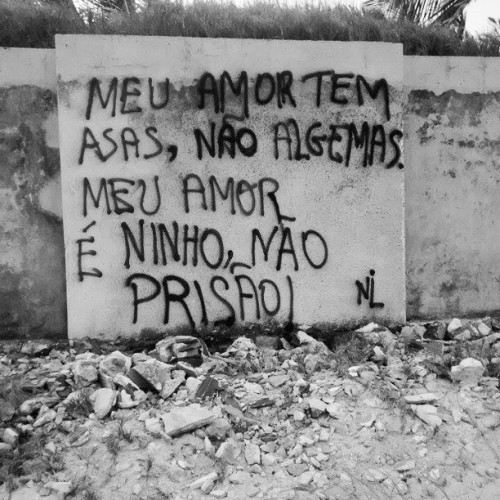 MEU AMOR TEM
ASAS, NÃO ALGEMAS.
MEU AMOR
É NINHO, NÃO
PRISÃO!
NiL